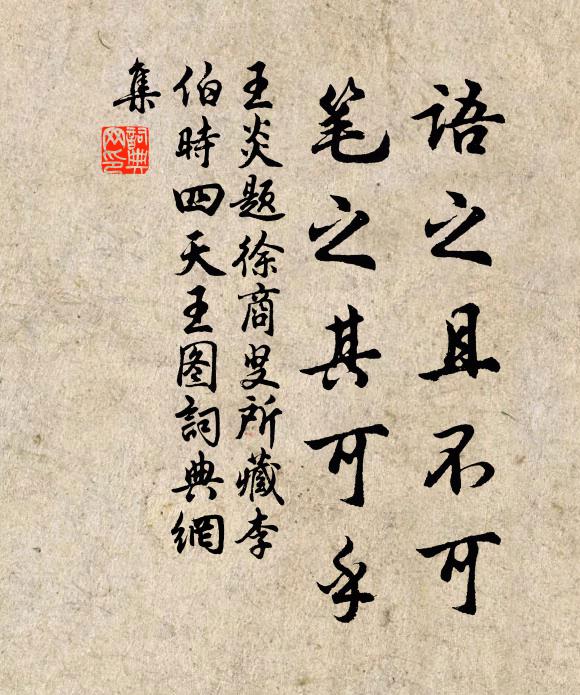 语之且不可
笔之其可乎
王炎题徐商叟所藏李
伯時四天王图詞典網
集
詞典
网印